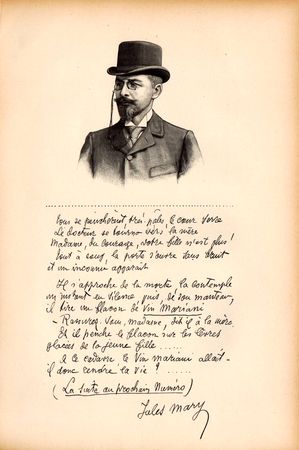 Tous se penchèrent, très pâles, le cœur serré
Le docteur se tourna vers la mère
Madame, du courage, votre fille n'est plus!
Tout à coup, la porte s'ouvre tout
et un inconnu apparaît
Il s'approche de la morte la contemple
un instant en silence puis, de son manteau,
il tire un flacon de Vin Mariani
— Rassurez-vous, madame, dit-il à la mère.
Et il penche le flacon sur les lèvres
glacées de la jeune fille......
à ce cadavre le Vin Mariani allait-
il donc rendre la vie? ......
(La suite au prochain Numéro)
Jules Mary